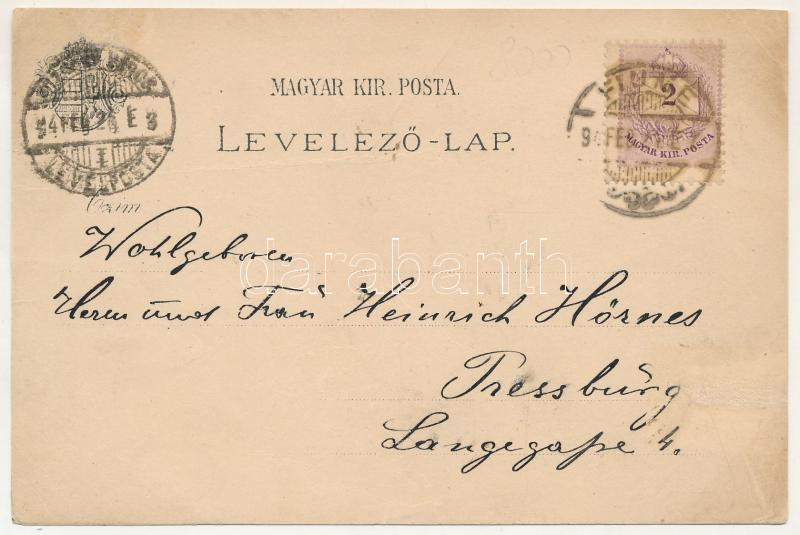 MAGYAR KIR. POSTA.
LEVELEZŐ-LAP.
94 FEB 24 E 3
I
LEVÉLPOSTA
94 FE
2
MAGYAR KIR. POSTA
Czim
Wohlgeboren
Herrn und Frau Heinrich Hörnes
Pressburg
Langegaße 4.
darabanth